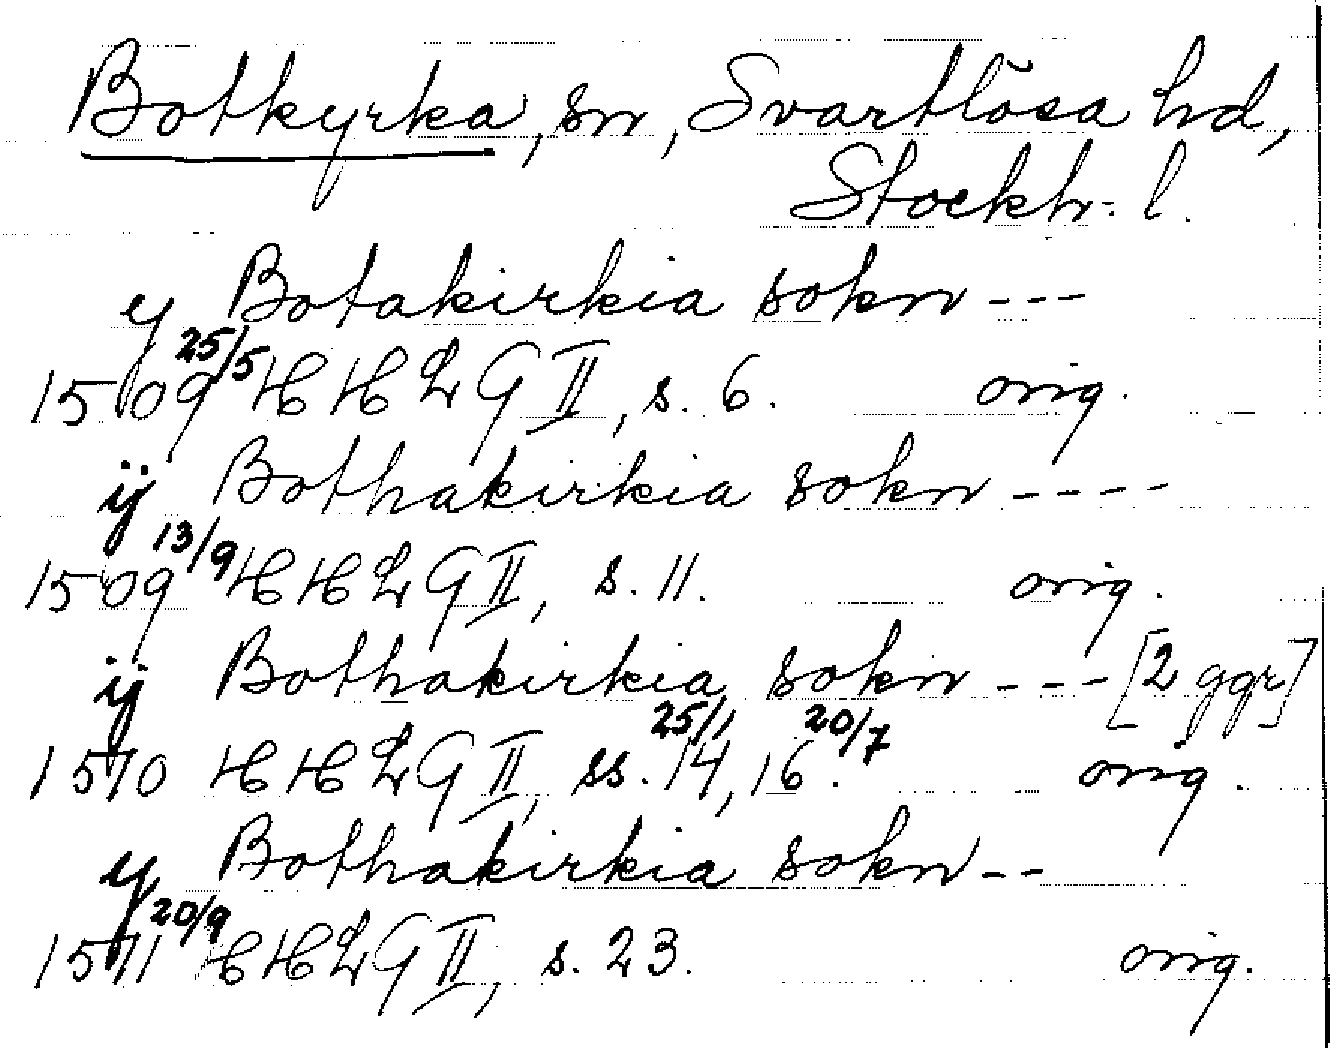 Botkyrka, sn, Svartlösa hd,
Stockh. l.
y Botakirkia sokn ---
1509 25/5 HHLG II, s. 6. orig.
ij Bothakirkia sokn ----
1509 13/9 HHLG II, s. 11. orig.
ij Bothakirkia sokn --- [2 ggr]
1510 HHLG II, ss. 14, 25/1 16. 20/7 orig.
y Bothakirkia sokn --
1511 20/9 HHLG II, s. 23. orig.